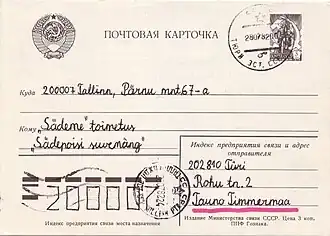 ПОЧТОВАЯ КАРТОЧКА
Куда 200007 Tallinn, Pärnu mnt. 67-a
Кому „Sädeme" toimetus
„Sädepoisi suvemäng"
Индекс предприятия связи и адрес отправителя
202810 Türi
Rohu tn. 2
Tauno Timmermaa
200007
Индекс предприятия связи места назначения
Издание Министерства связи СССР. Цена 3 коп.
ППФ Гознака.